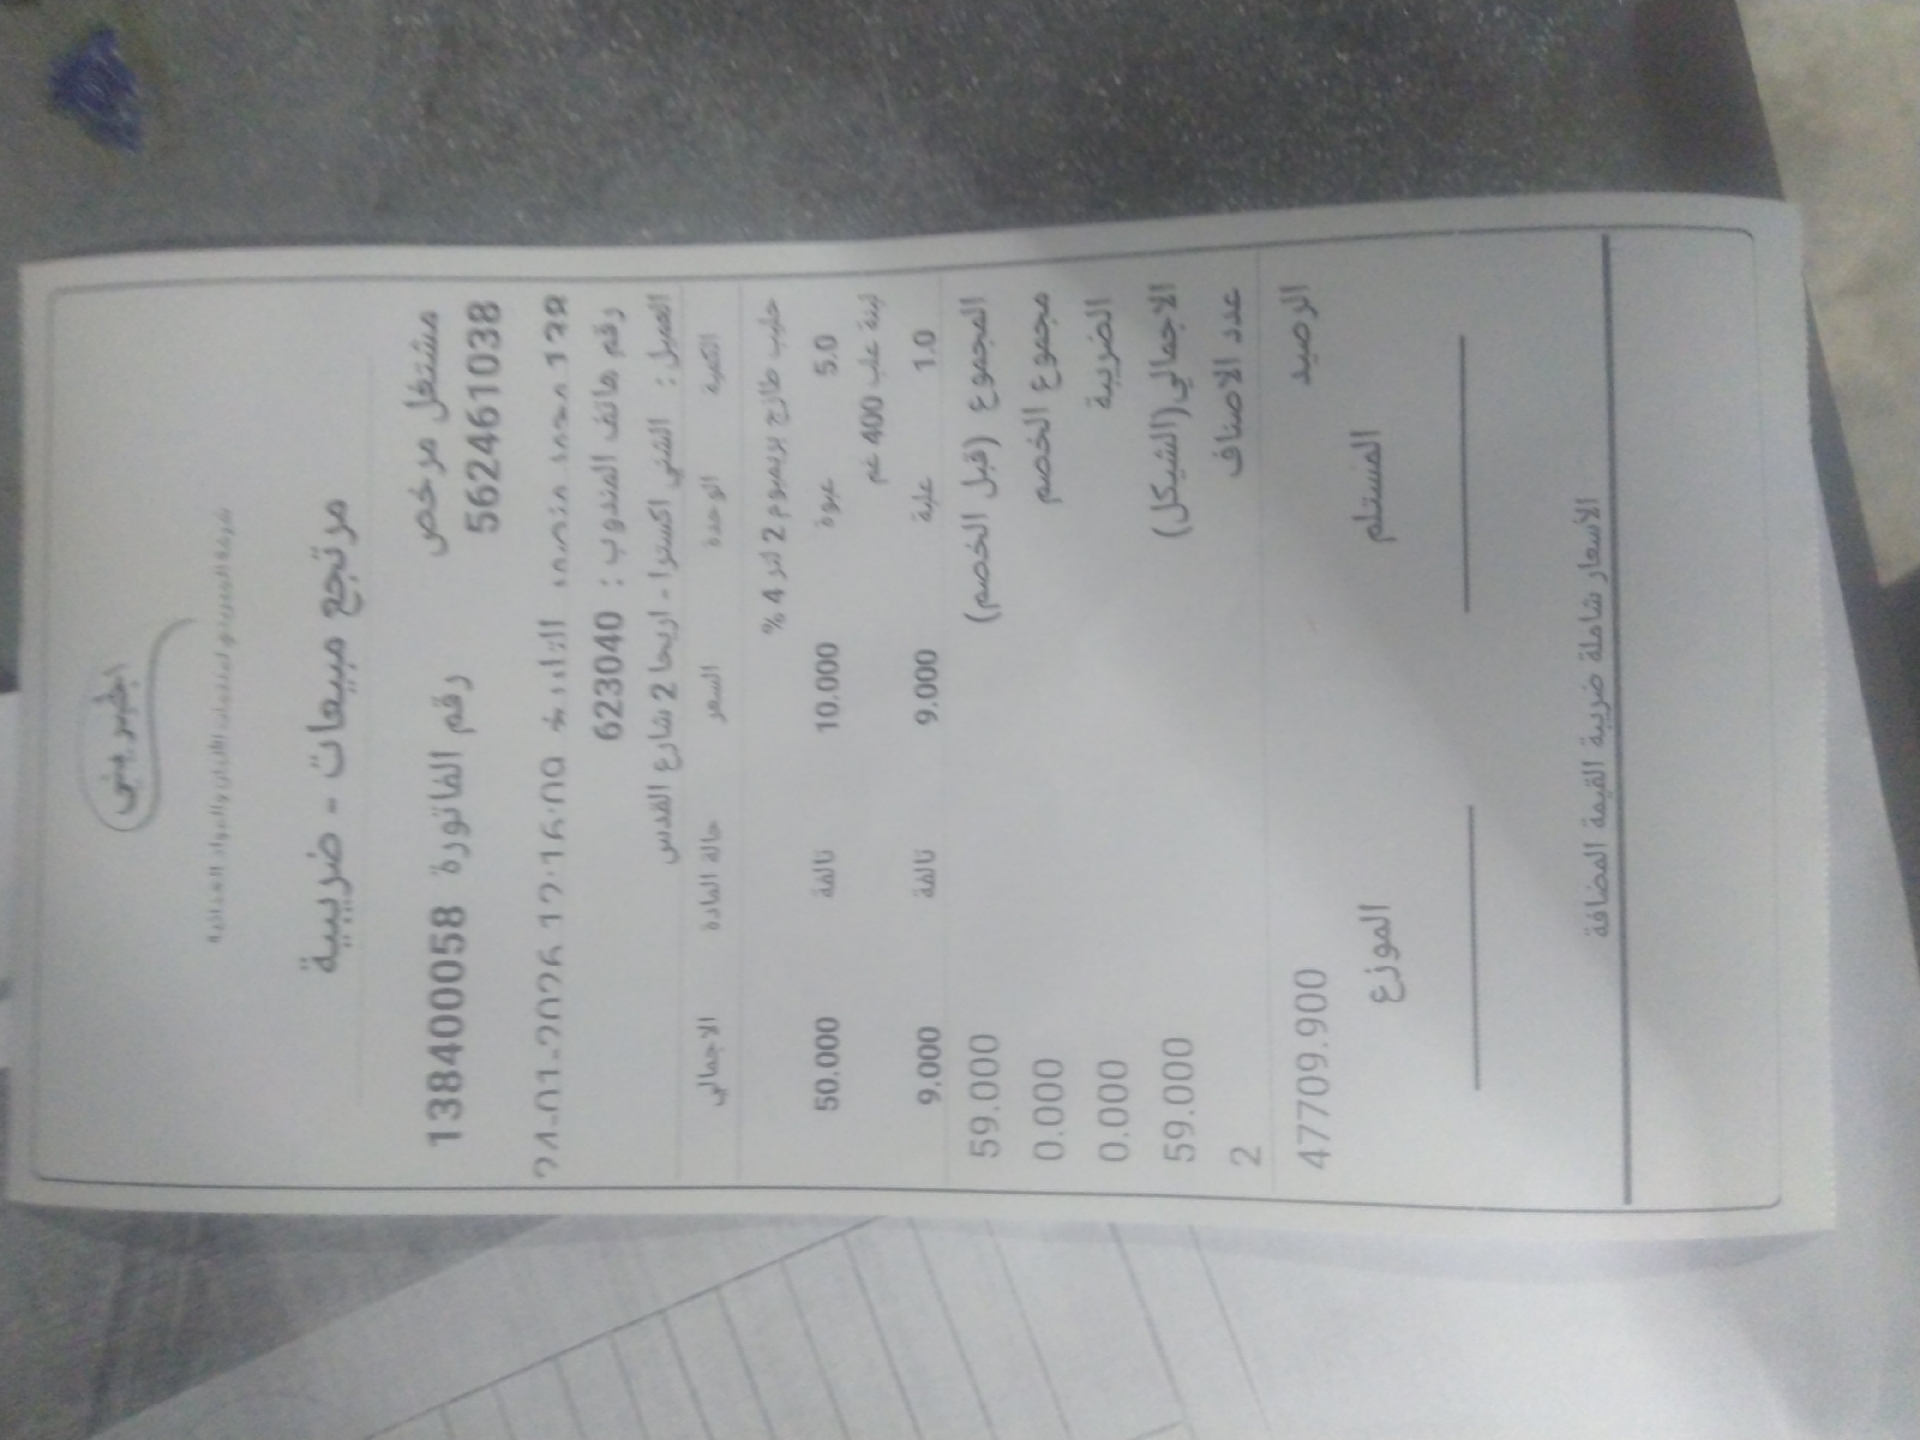 الجبريني
شركة الجبريني لمنتجات الالبان والمواد الغذائية
مرتجع مبيعات - ضريبية
مشتغل مرخص 562461038 رقم الفاتورة 138400058
138 محمد منتصر التاريخ 24-01-2026 12:16:05
رقم هاتف المندوب : 623040
العميل : الشني اكسترا - اريحا 2 شارع القدس
الكمية الوحدة السعر حالة المادة الاجمالي
حليب طازج بريميوم 2 لتر 4 %
5.0 عبوة 10.000 تالفة 50.000
لبنة علب 400 غم
1.0 علبة 9.000 تالفة 9.000
المجموع (قبل الخصم) 59.000
مجموع الخصم 0.000
الضريبة 0.000
الاجمالي(الشيكل) 59.000
عدد الاصناف 2
الرصيد 47709.900
المستلم الموزع
الأسعار شاملة ضريبة القيمة المضافة